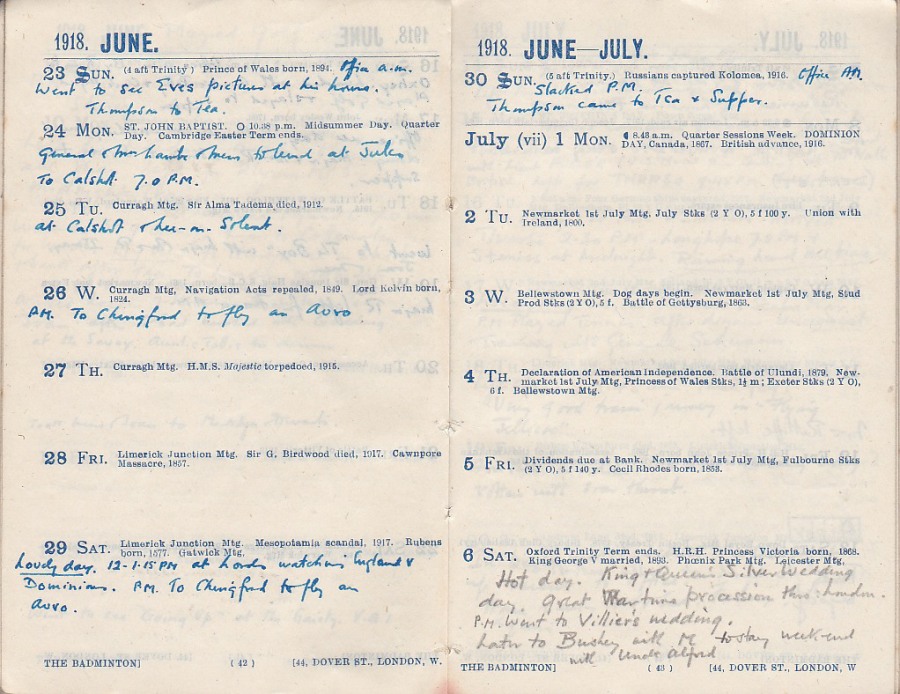 1918. JUNE.
23 SUN. (4 aft Trinity) Prince of Wales born, 1894. Office a.m.
Went to see Eves pictures at his house.
Thompson to Tea.
24 MON. ST. JOHN BAPTIST. 10.38 p.m. Midsummer Day. Quarter
Day. Cambridge Easter Term ends.
General & Mrs to lunch at
To Calshot 7.0 P.M.
25 TU. Curragh Mtg. Sir Alma Tadema died, 1912.
at Calshot Solent.
26 W. Curragh Mtg, Navigation Acts repealed, 1849. Lord Kelvin born,
1824.
P.M. To Chingford to fly an Avro
27 TH. Curragh Mtg. H.M.S. Majestic torpedoed, 1915.
28 FRI. Limerick Junction Mtg. Sir G. Birdwood died, 1917. Cawnpore
Massacre, 1857.
29 SAT. Limerick Junction Mtg. Mesopotamia scandal, 1917. Rubens
born, 1577. Gatwick Mtg.
Lovely day. 12-1.15 PM at Lords watching England v
Dominions. P.M. To Chingford to fly an
Avro.
THE BADMINTON] (42) [44, DOVER ST., LONDON, W.
1918. JUNE—JULY.
30 SUN. (5 aft Trinity.) Russians captured Kolomea, 1916. Office AM.
Slacked P.M.
Thompson came to Tea & Supper.
July (vii) 1 MON. 8.43 a.m. Quarter Sessions Week. DOMINION
DAY, Canada, 1867. British advance, 1916.
2 TU. Newmarket 1st July Mtg, July Stks (2 Y O), 5 f 100 y. Union with
Ireland, 1800.
3 W. Bellewstown Mtg. Dog days begin. Newmarket 1st July Mtg, Stud
Prod Stks (2 Y O), 5 f. Battle of Gettysburg, 1863.
4 TH. Declaration of American Independence. Battle of Ulundi, 1879. New-
market 1st July Mtg, Princess of Wales Stks, 1½ m; Exeter Stks (2 Y O),
6 f. Bellewstown Mtg.
5 FRI. Dividends due at Bank. Newmarket 1st July Mtg, Fulbourne Stks
(2 Y O), 5 f 140 y. Cecil Rhodes born, 1853.
6 SAT. Oxford Trinity Term ends. H.R.H. Princess Victoria born, 1868.
King George V married, 1893. Phœnix Park Mtg. Leicester Mtg.
Hot day. King & Queen's Silver Wedding
day. Great Wartime procession thro: London.
P.M. Went to Villier's wedding.
Later to Bushey with M to stay week-end
with Uncle Alfred
THE BADMINTON] (43) [44, DOVER ST., LONDON, W